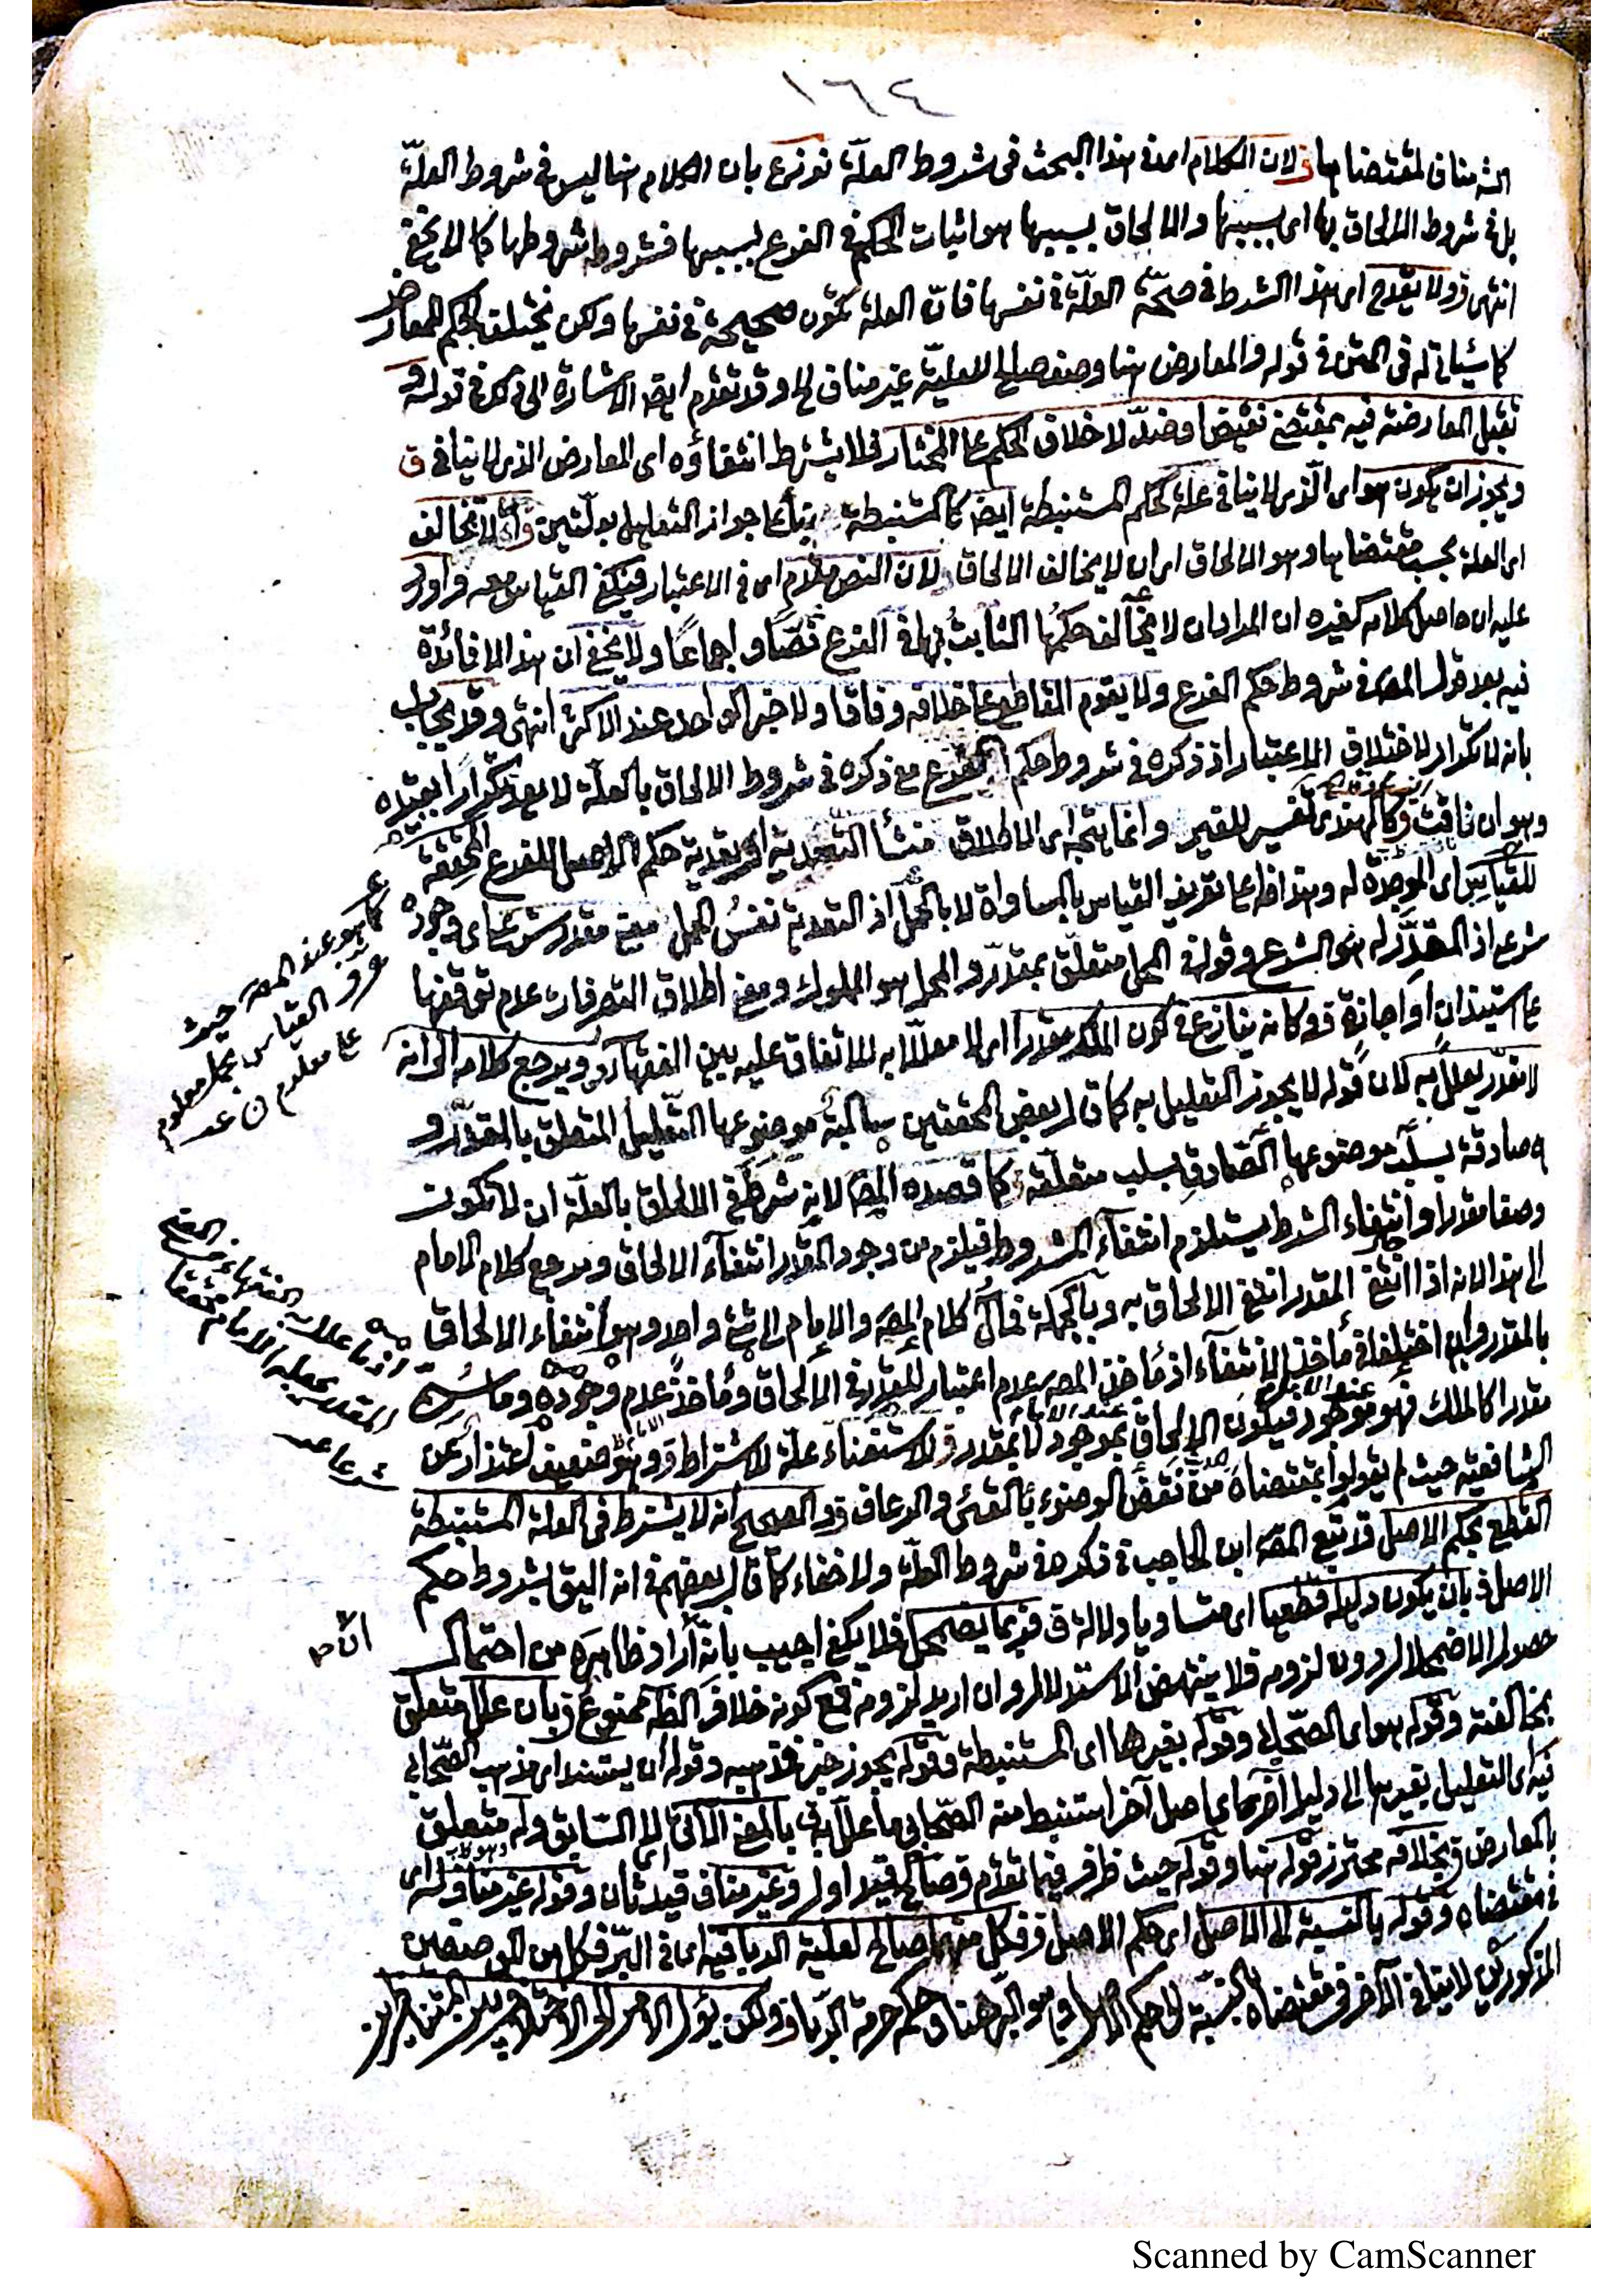 ١٦٤
لمقتضاها ق لان الكلام اى فى هذا البحث فى شروط العلة نوزع بان الكلام هنا ليس فى شروط العلة
بل فى شروط الالحاق بها اى بسببها والالحاق بسببها هو اثبات الحكم فى الفرع بسببها فشروطه شروطها كما لا يخفى
انتهى ق ولا يقدح اى هذا الشرط فى صحة العلة فى نفسها فان العلة تكون صحيحة فى نفسها ولكن يتخلف الحكم للمعارض
كما سيأتى له فى المتن فى قوله والمعارض هنا وصف صالح للعلية غير مناف الخ وقد تقدم ايضا الاشارة الى ذلك فى قوله و
تقبل المعارضة فيه بمقتضى نقيض او ضد لا خلاف الحكم على المختار ق لا يشترط انتفاؤه اى المعارض الذى لا ينافى ق
ويجوز ان يكون هو اى الذى لا ينافى علة لحكم المستنبطة ايضا كالمستنبطة بناء على جواز التعليل بعلتين ق وان لا تخالف
اى العلة بحسب مقتضاها وهو الالحاق اى ان لا يخالف الالحاق لان النص مقدم اى فى الاعتبار فينتفى القياس معه واورد
عليه ان حاصل كلامه كغيره ان المراد ان لا يخالف حكمها الثابت بها فى الفرع نصا و اجماعا ولا يخفى ان هذا لا فائدة
فيه بعد قول المص فى شروط حكم الفرع ولا يقوم القاطع على خلافه وفاقا ولا خبر الواحد عند الاكثر انتهى وقد يجاب
بانه لا تكرار لاختلاف الاعتبار اذ ذكره فى شروط حكم الفرع مع ذكره فى شروط الالحاق بالعلة لا يعد تكرارا
وهو ان نافت ق كالهندى تفسير للغير وانما يتجه اى الاطلاق منشأ التعدية اى تعدية حكم الاصل للفرع المحققة
للقياس اى الموجدة له وهذا على تعريف القياس بالمساواة لا بالحمل اذ التعدية نفس الحمل معنى مقدر شرعا اى وجوده
شرعى اذ المقدر له هو الشرع وقوله فى المحل متعلق بمقدر والمحل هو المملوك ومعنى اطلاق التصرفات عدم توقفها
على استيذان او اجازة ق وكانه ينازع فى كون الملك مقدرا اى لا معللا به للاتفاق عليه بين الفقهاء ق ويرجع كلامه الى انه
لا مقدر يعلل به لان قوله لا يجوز التعليل به كما قال بعض المحققين سالبة موضوعها التعليل المتعلق بالمقدر و
صادقة بسلب موضوعها الصادق بسلب متعلقه كما قصده المص لانه شرط فى الالحاق بالعلة ان لا تكون
وصفا مقدرا وانتفاء الشرط يستلزم انتفاء المشروط فيلزم من وجود المقدر انتفاء الالحاق ومرجع كلام الامام
الى هذا لانه اذا انتفى المقدر انتفى الالحاق به وبالجملة فمآل كلام المص والامام الى شئ واحد وهو انتفاء الالحاق
بالمقدر وان اختلفا فى مأخذ الانتفاء اذ مأخذ المص عدم اعتبار المقدر فى الالحاق ومأخذ عدم وجوده وما
مقدرا كالملك فهو موجود فيكون الالحاق بموجود لا بمقدر ق للاستغناء علة لاشتراط ق وهو ضعيف اعتذار عن
الشافعية حيث لم يقولوا بمقتضاه من نقض الوضوء بالقئ والرعاف ق والصحيح انه لا يشترط فى العلة المستنبطة
القطع بحكم الاصل قد تبع المص ابن الحاجب فى ذكر هذه فى شروط العلة ولا خفاء كما قال بعضهم فى انه اليق بشروط حكم
الاصل ق بان يكون دليله قطعيا اى متنا ودلالة ق فربما يضمحل فلا يكفى اجيب بانه اراد ظاهره من احتمال
حصول الاضمحلال دون لزومه فلا ينتهض الاستدلال وان اريد لزومه فمع كونه خلاف الظاهر ممنوع ق بان علل متعلق
بمخالفته وقوله هو اى الصحابى وقوله بغيرها اى المستنبطة وقوله يجوز خبر فمذهبه وقوله ان يستند اى مذهب الصحابى
فيه اى التعليل بغيرها الى دليل آخر كما على اصل آخر استنبط منه الصحابى ما علل به ق بالمعنى الآتى لا السابق وله متعلق
بالمعارض ق بخلافه محترز قوله هنا وقوله حيث ظرف فيما تقدم ق صالح قيد اول وغير مناف قيد ثان وقوله غير مناف له اى
فى مقتضاه وقوله بالنسبة الى الاصل اى حكم الاصل ق فكل منهما صالح لعلية الربا فيه اى فى البر فكل من الوصفين
المذكورين لا ينافى الآخر فى مقتضاه بالنسبة الى حكم الاصل وهو البر هنا وحكمه حرمة الربا ق ولكن يؤول الامر الى الاختلاف بين المتناظرين
كما هو عند المص حيث
عرف القياس بحمل معلوم
على معلوم